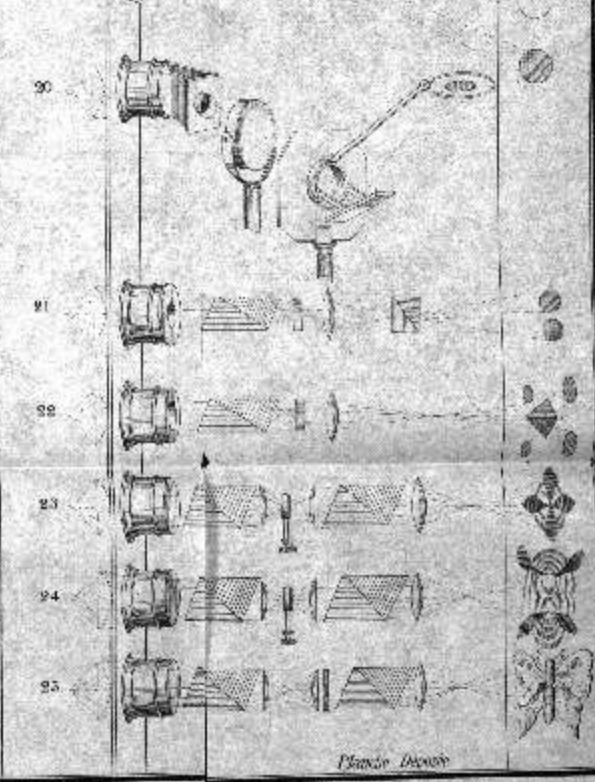 20
21
22
23
24
25
Planche Déposée